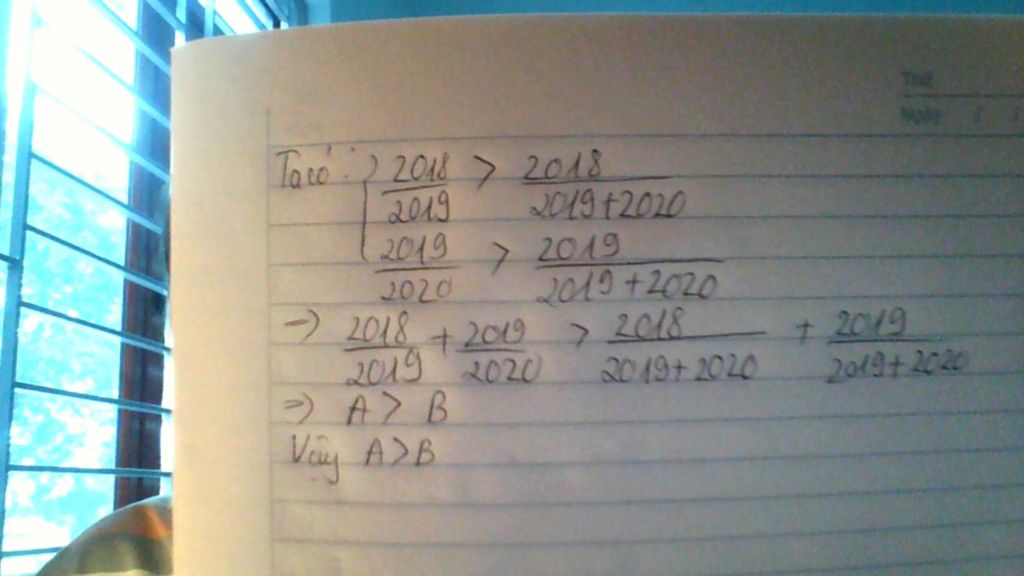 Thứ
Ngày / /
Ta có: { 2018/2019 > 2018/2019+2020
2019/2020 > 2019/2019+2020
=> 2018/2019 + 2019/2020 > 2018/2019+2020 + 2019/2019+2020
=> A > B
Vậy A > B